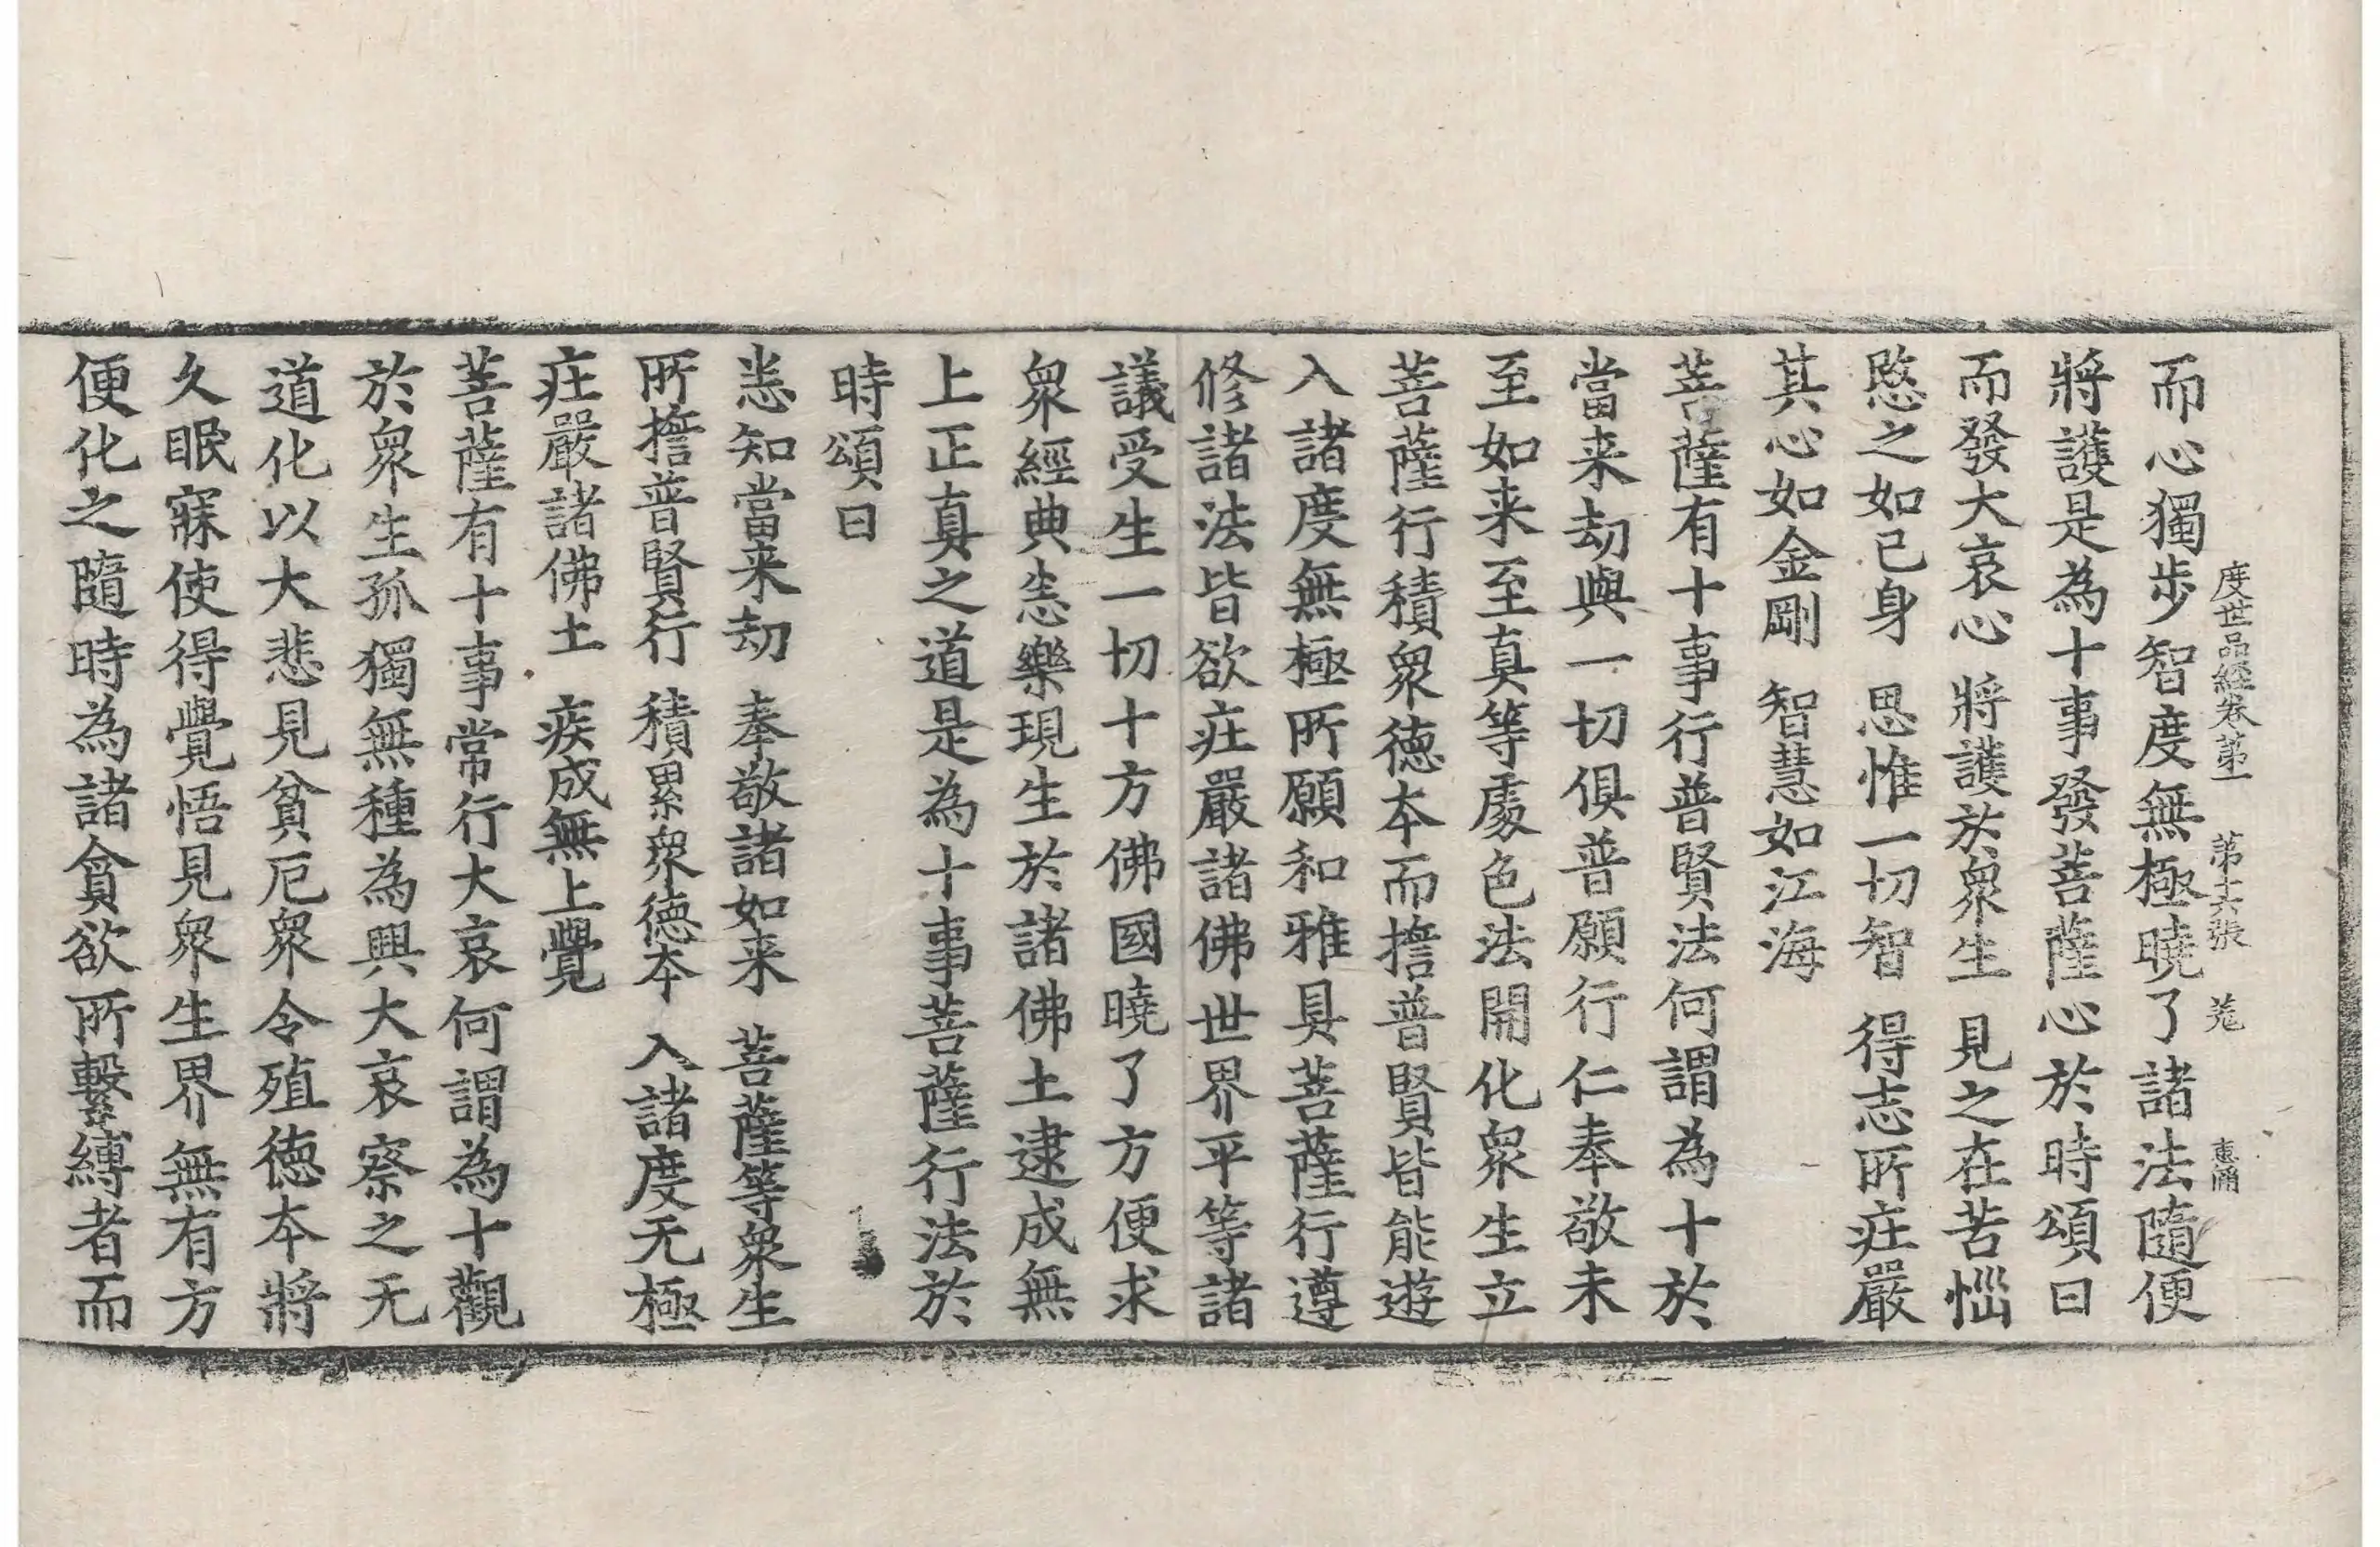 度世品經卷第一 第十六張 羗 惠甫
而心獨步智度無極曉了諸法隨便
將護是為十事發菩薩心於時頌曰
而發大哀心 將護於衆生 見之在苦惱
愍之如己身 思惟一切智 得志所莊嚴
其心如金剛 智慧如江海
菩薩有十事行普賢法何謂為十於
當来劫與一切俱普願行仁奉敬未
至如来至真等處色法開化衆生立
菩薩行積衆德本而擔普賢皆能遊
入諸度無極所願和雅具菩薩行遵
修諸法皆欲莊嚴諸佛世界平等諸
議受生一切十方佛國曉了方便求
衆經典恙樂現生於諸佛土逮成無
上正真之道是為十事菩薩行法於
時頌曰
恙知當来劫 奉敬諸如来 菩薩等衆生
所擔普賢行 積累衆德本 入諸度无極
莊嚴諸佛土 疾成無上覺
菩薩有十事常行大哀何謂為十觀
於衆生孤獨無種為興大哀察之无
道化以大悲見貧厄衆令殖德本將
久眠寐使得覺悟見衆生界無有方
便化之隨時為諸貪欲所繫縛者而